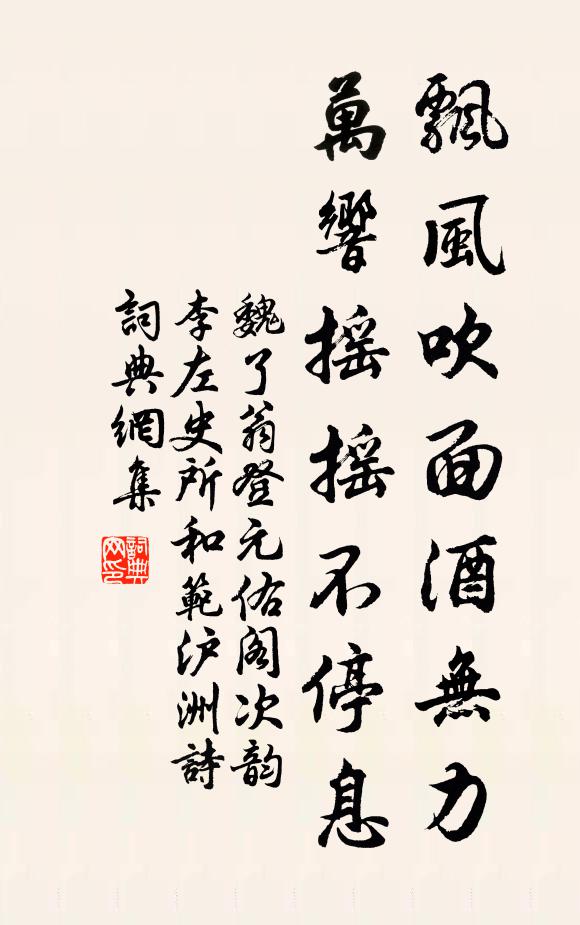 飄風吹面酒無力
萬響摇摇不停息
魏了翁登元佑阁次韵
李左史所和範沪洲詩
詞典網集
詞典网印